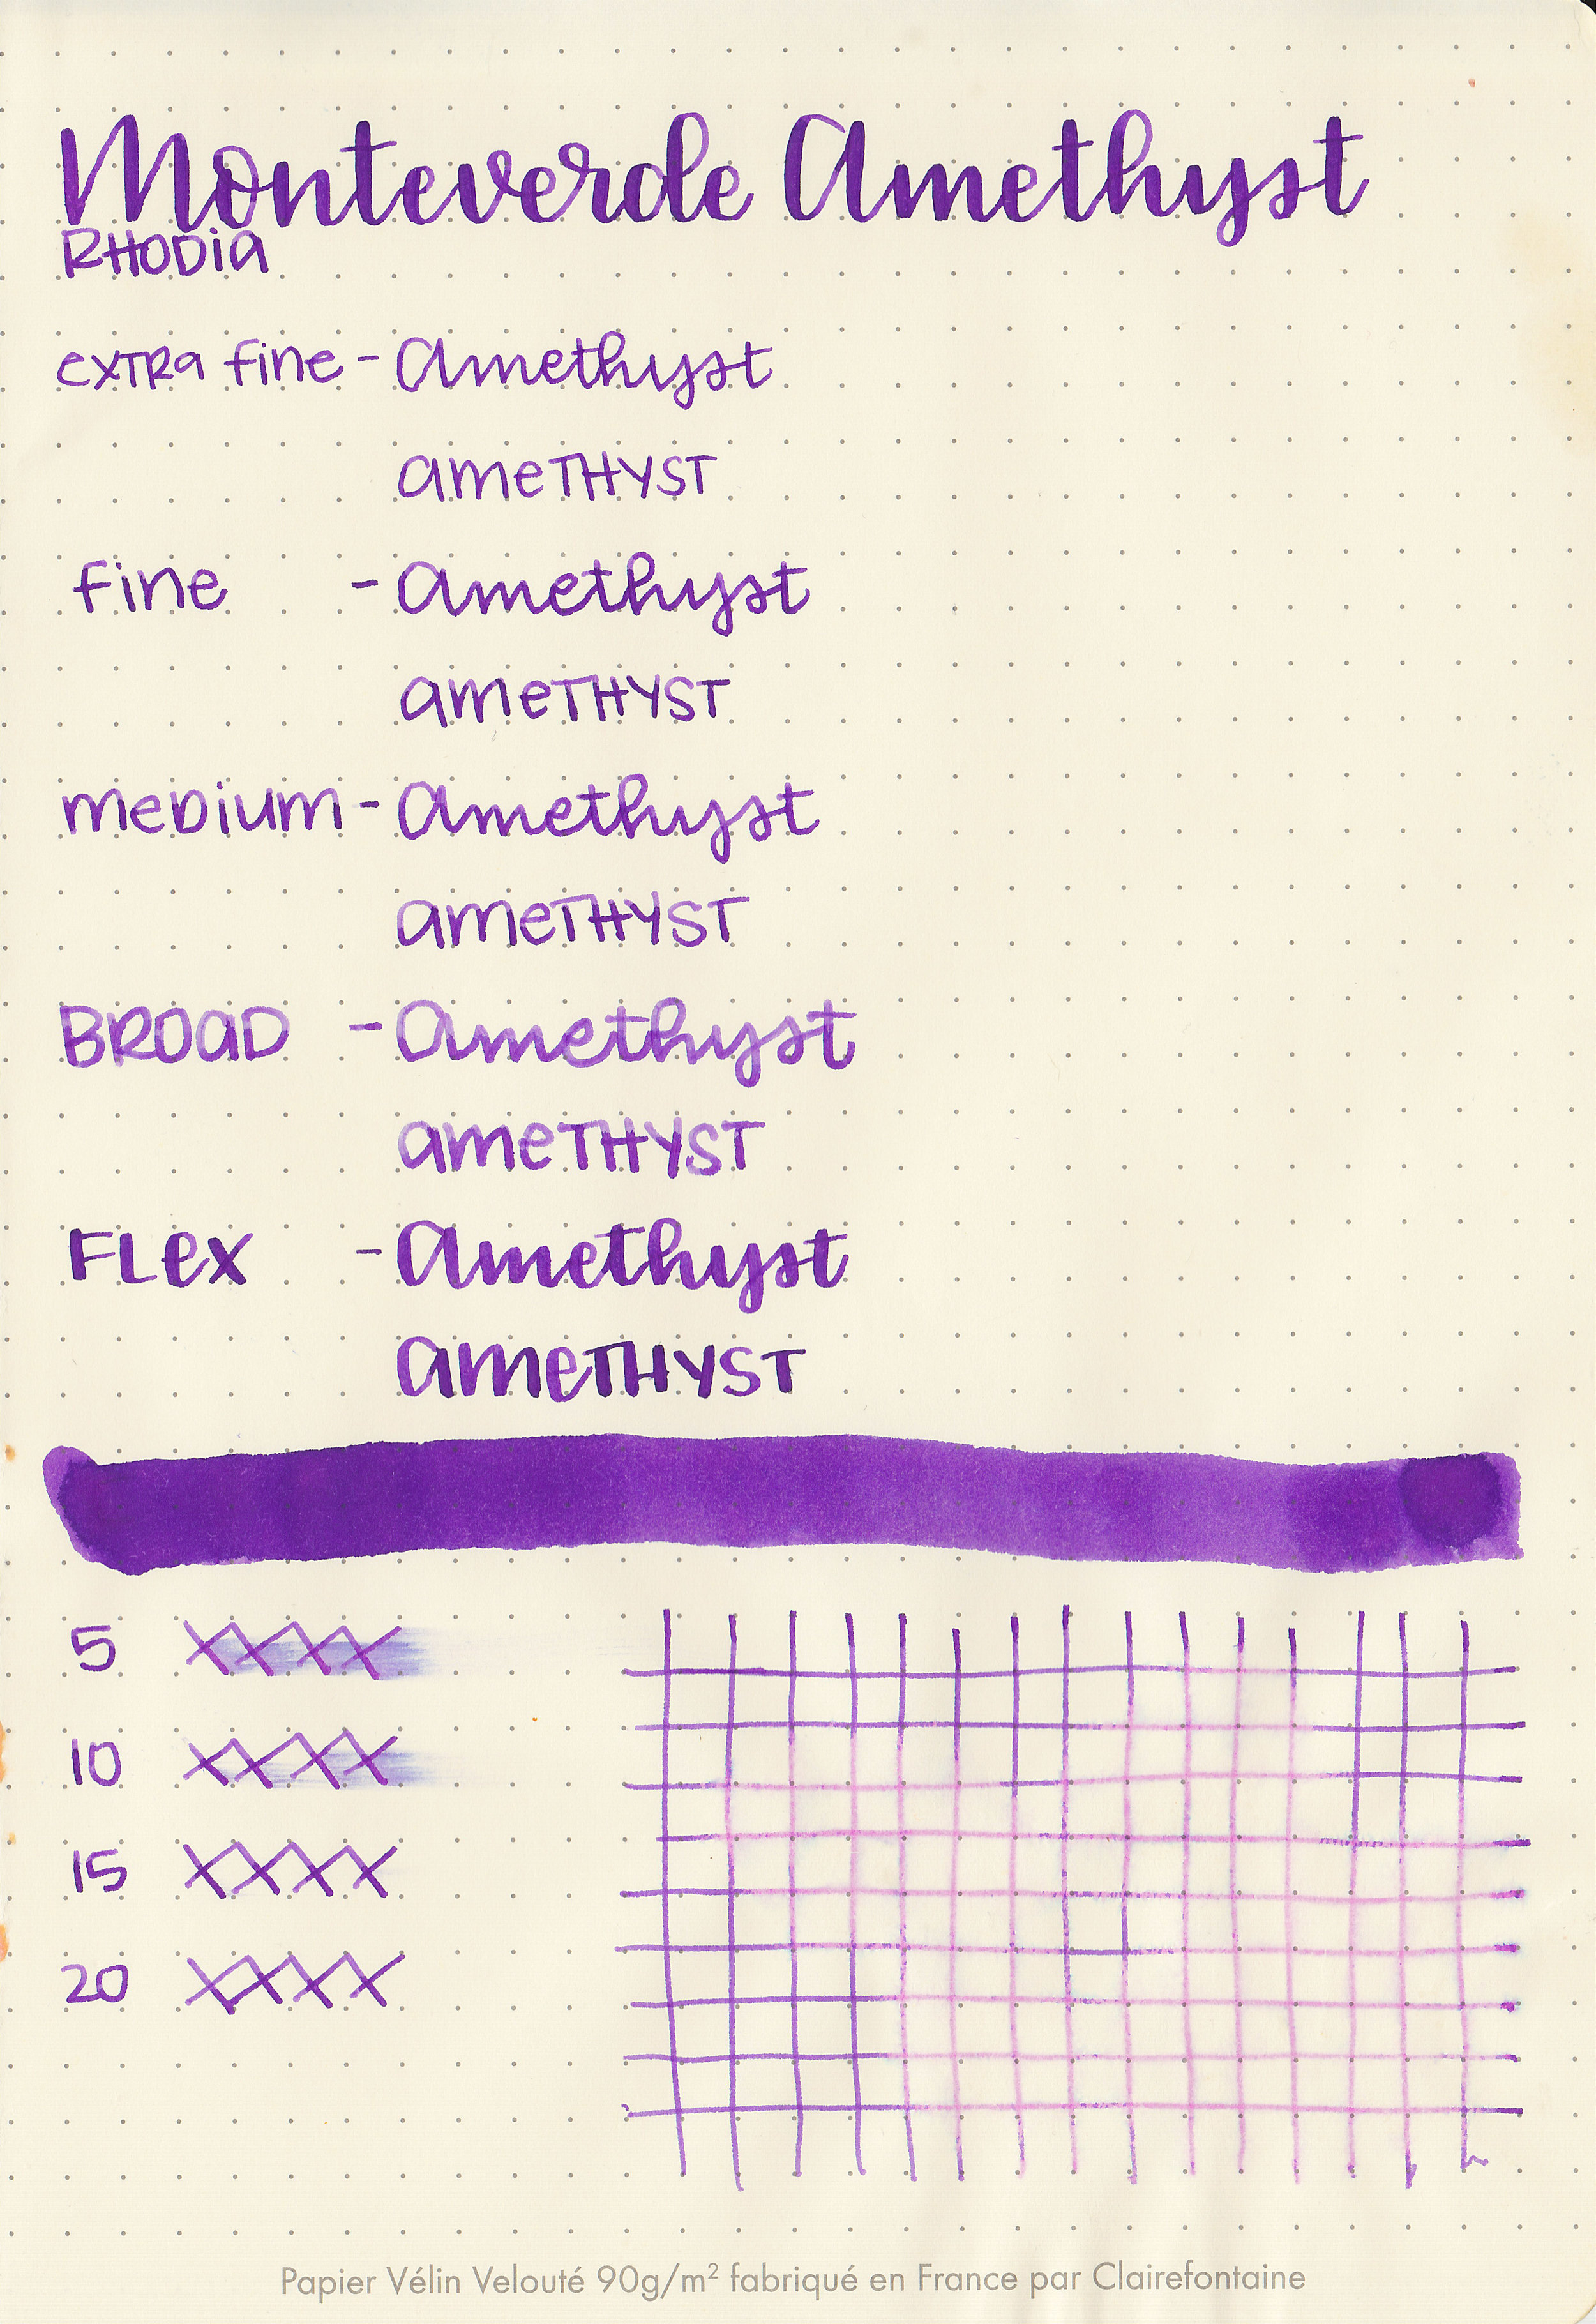 Monteverde Amethyst
RHODIA
exTRa fine - Amethyst
ameTHYST
fine - Amethyst
ameTHYST
meDium - Amethyst
ameTHYST
BROaD - Amethyst
ameTHYST
FLex - Amethyst
ameTHYST
5 XXXX
10 XXXX
15 XXXX
20 XXXX
Papier Vélin Velouté 90g/m² fabriqué en France par Clairefontaine